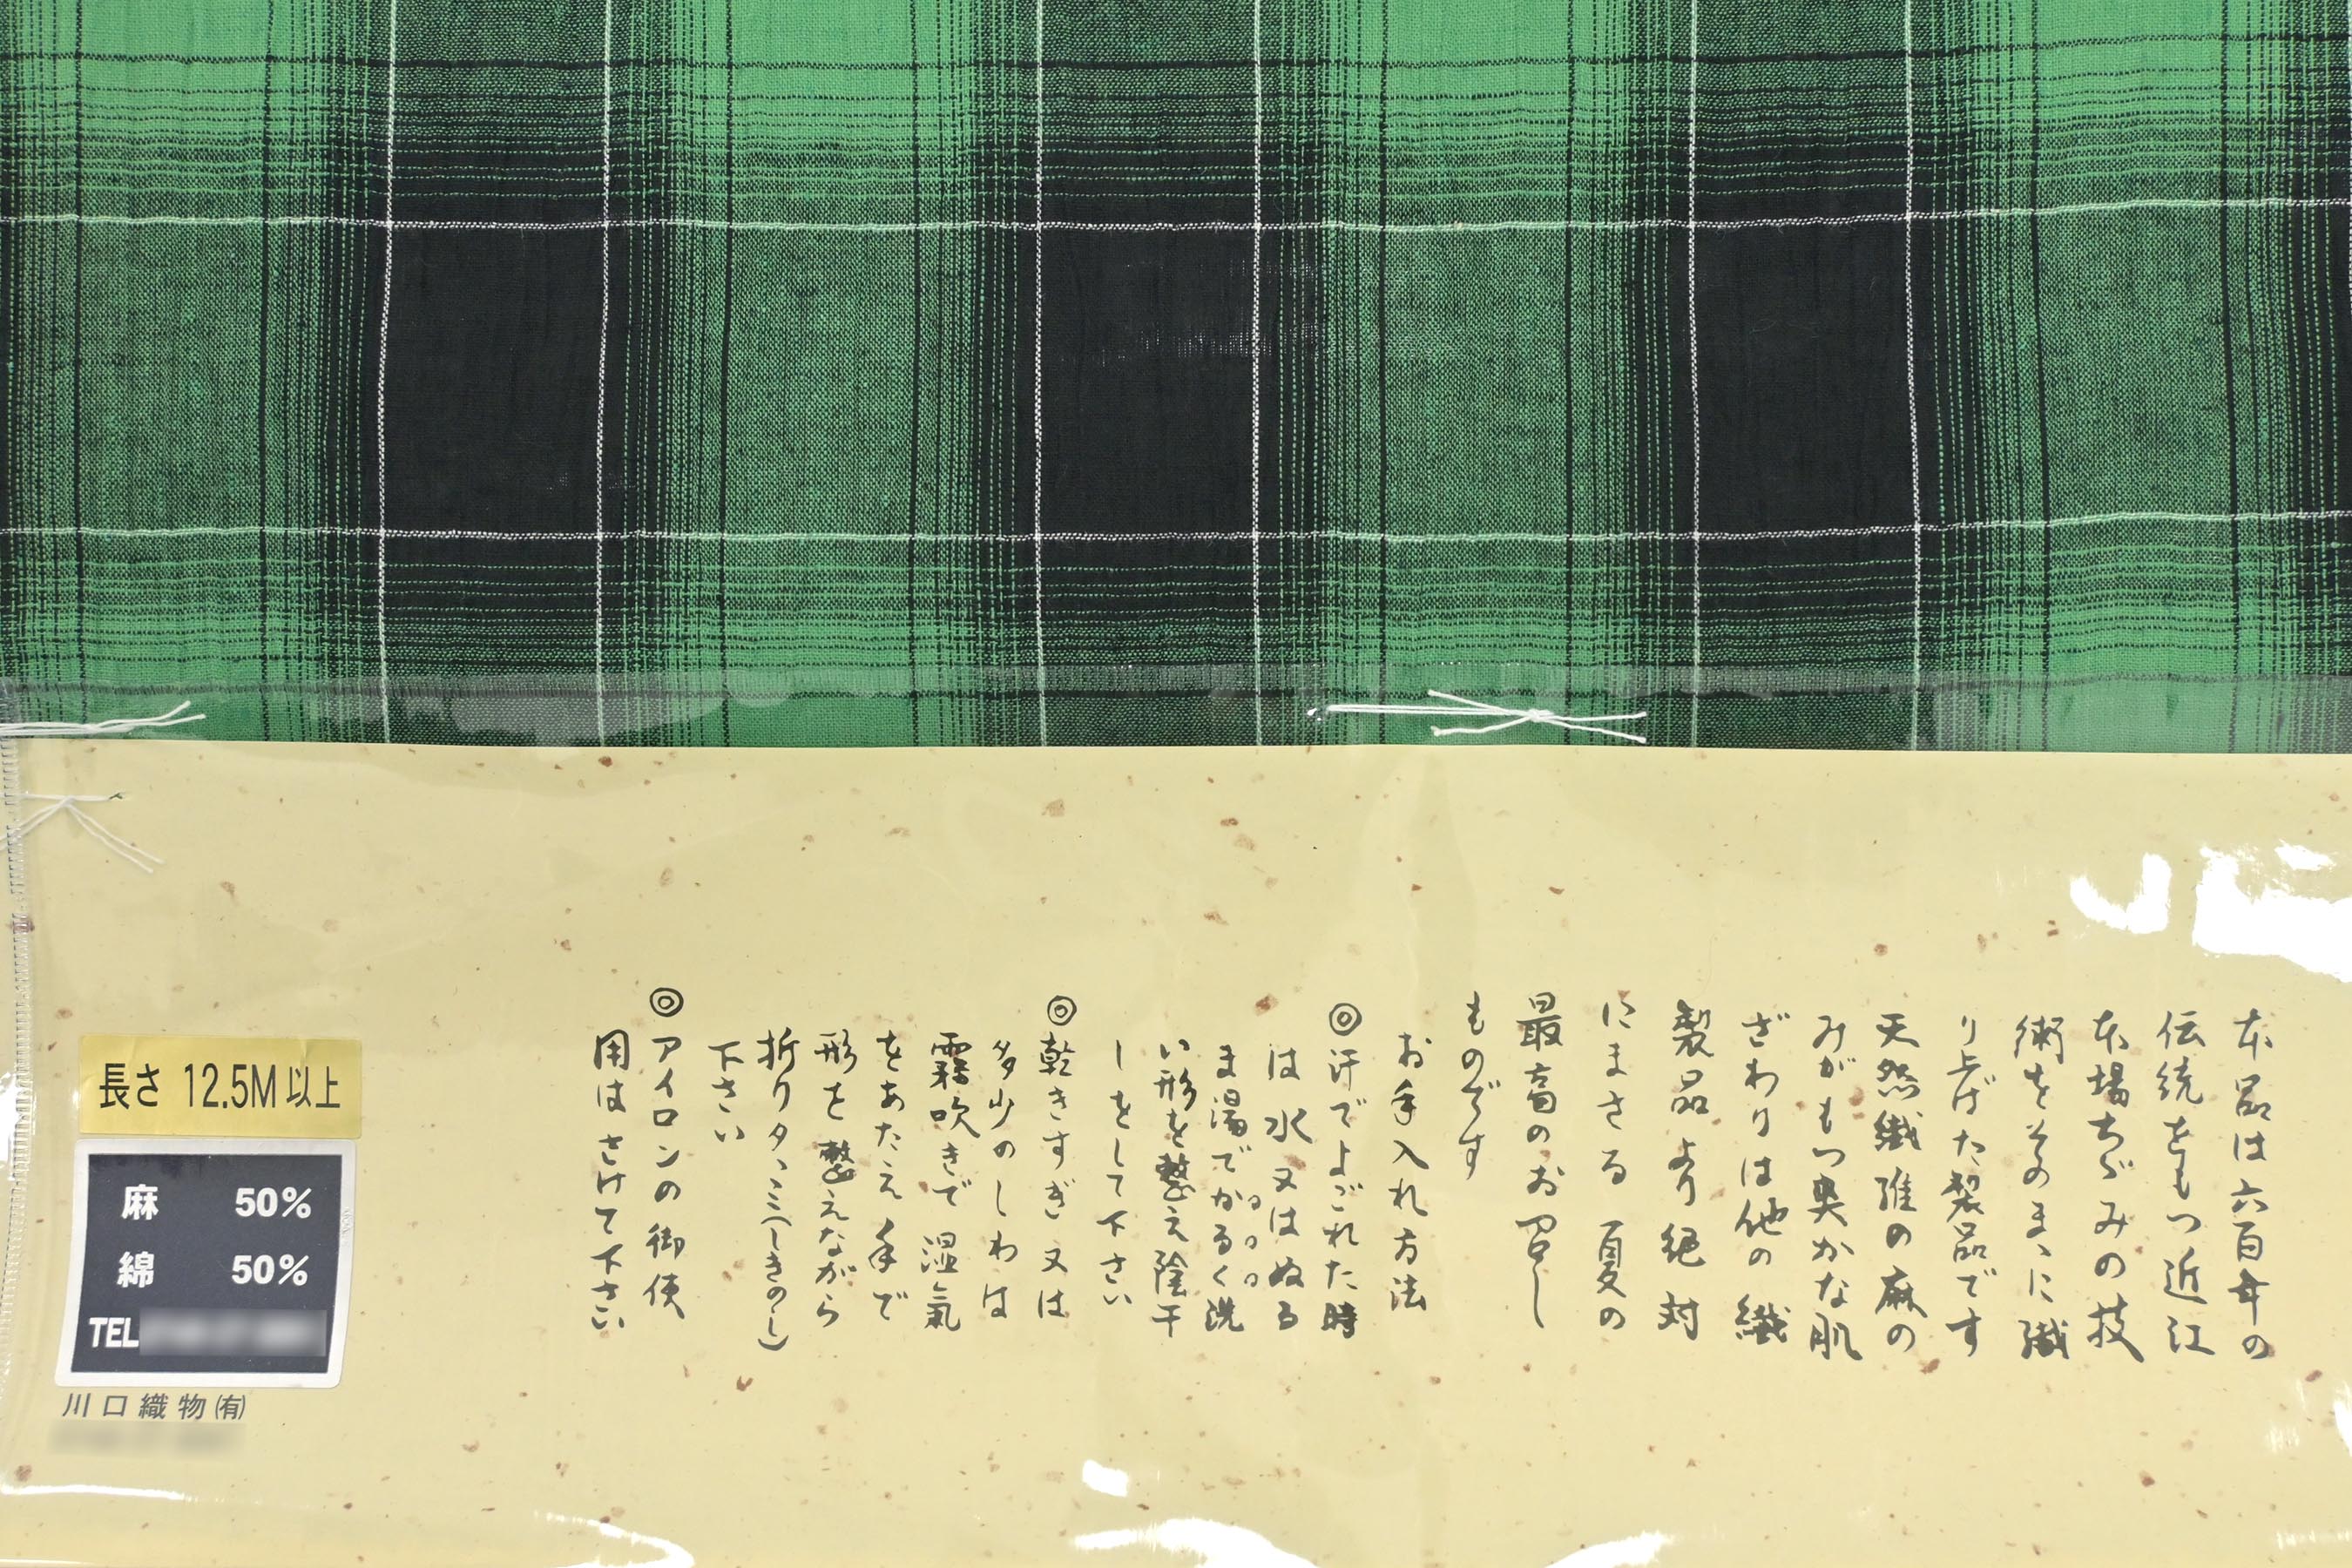 本品は六百年の
伝統をもつ近江
本場ちぢみの技
術をそのまゝに織
り上げた製品です
天然繊維の麻の
みがもつ奥かな肌
ざわりは他の繊
製品より絶対
にまさる夏の
最高のお召し
ものです
お手入れ方法
◎汗でよごれた時
は水又はぬる
ま湯でかるく洗
い形を整え陰干
しをして下さい
◎乾きすぎ又は
多少のしわは
霧吹きで湿氣
をあたえ手で
形を整えながら
折りタゝミ(しきのし)
下さい
◎アイロンの御使
用はさけて下さい
長さ 12.5M以上
麻 50%
綿 50%
TEL
川口織物㈲